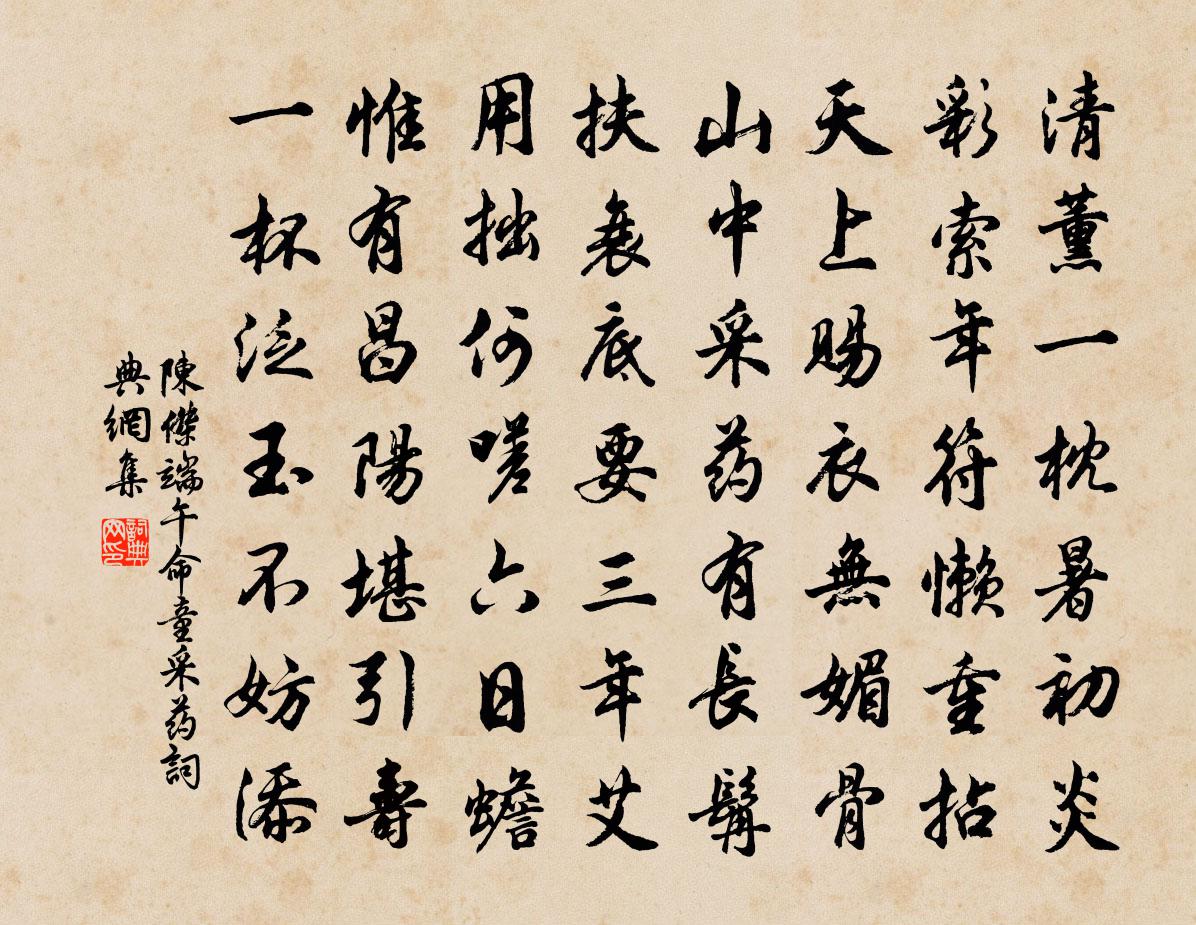 清薰一枕暑初炎
彩索年符懶重拈
天上賜衣無媚骨
山中采药有長髯
扶衰底要三年艾
用拙何嗟六日蟾
惟有昌陽堪引壽
一杯泛玉不妨添
陳傑端午命童采药詞
典網集
詞典
网印